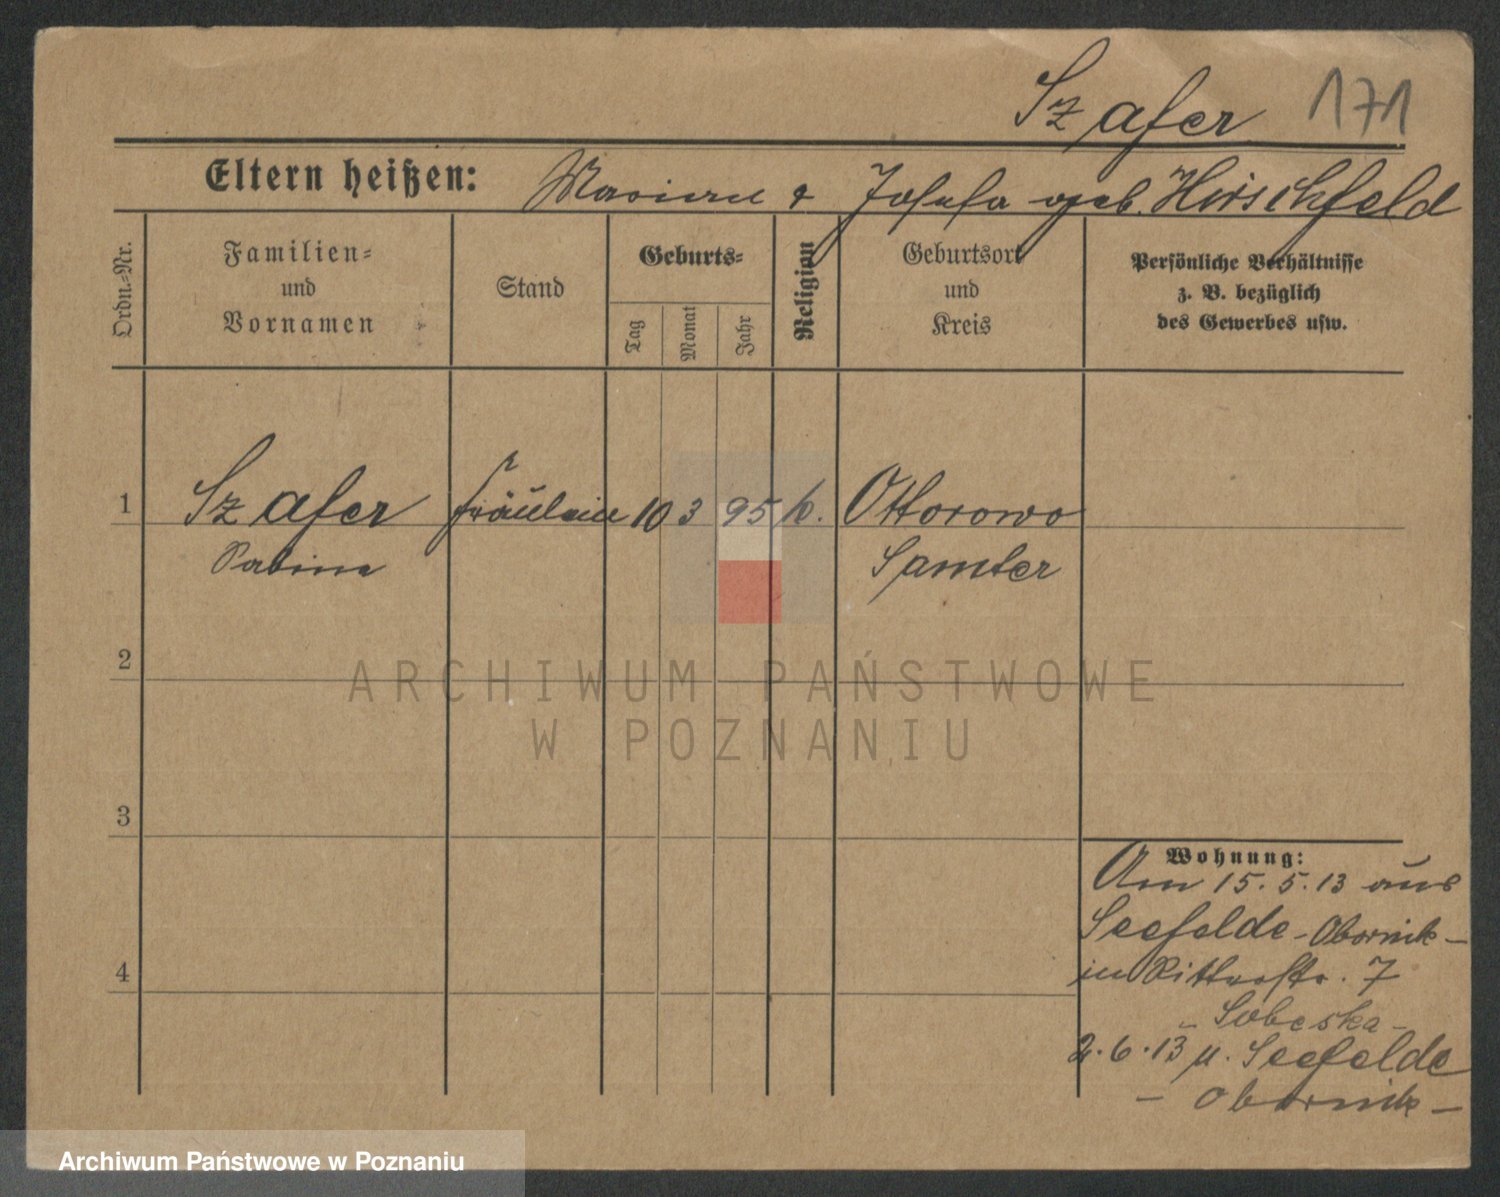 Szafer 171
Eltern heißen: & Josefa geb. Hirschfeld
Ordn.-Nr.
Familien-
und
Vornamen
Stand
Geburts-
Tag
Monat
Jahr
Religion
Geburtsort
und
Kreis
Persönliche Verhältnisse
z. B. bezüglich
des Gewerbes usw.
1 Szafer Fräulein 10 3 95 k. Ottorowo
Sabina Samter
2
ARCHIWUM PAŃSTWOWE
W POZNANIU
3
Wohnung:
Am 15.5.13 aus
Seefelde - Obornik -
in Ritterstr. 7
4
- Sobeska -
2.6.13 n. Seefelde
- Obornik -
Archiwum Państwowe w Poznaniu